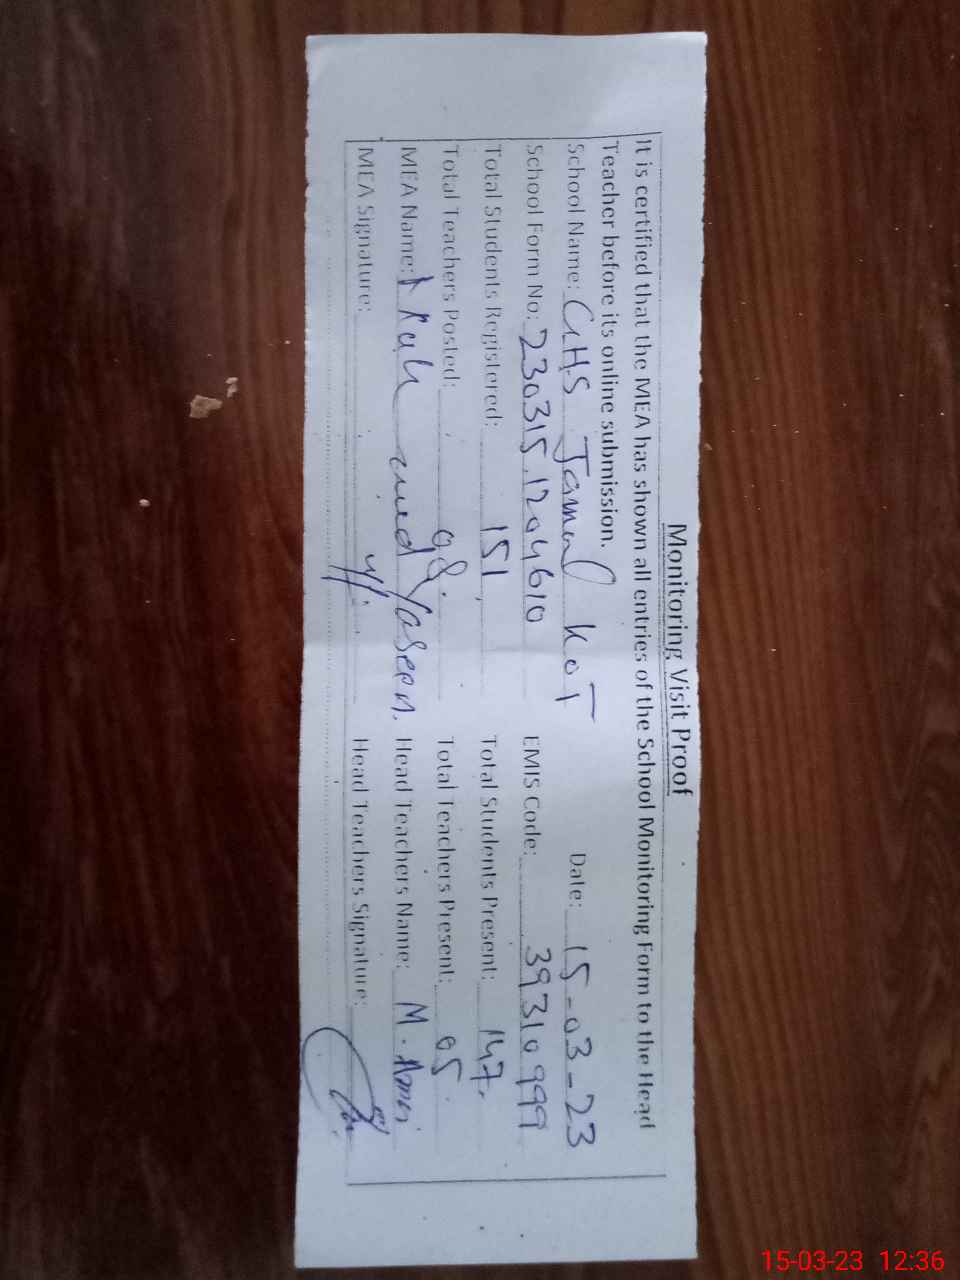 Monitoring Visit Proof
It is certified that the MEA has shown all entries of the School Monitoring Form to the Head
Teacher before its online submission.
School Name: GHS Jamal KoT Date: 15-03-23
School Form No: 230315.1204610 EMIS Code: 39310999
Total Students Registered: 151 Total Students Present: 147
Total Teachers Posted: 08 Total Teachers Present: 05
MEA Name: Yaseen. Head Teachers Name: M.
MEA Signature: Head Teachers Signature:
15-03-23 12:36